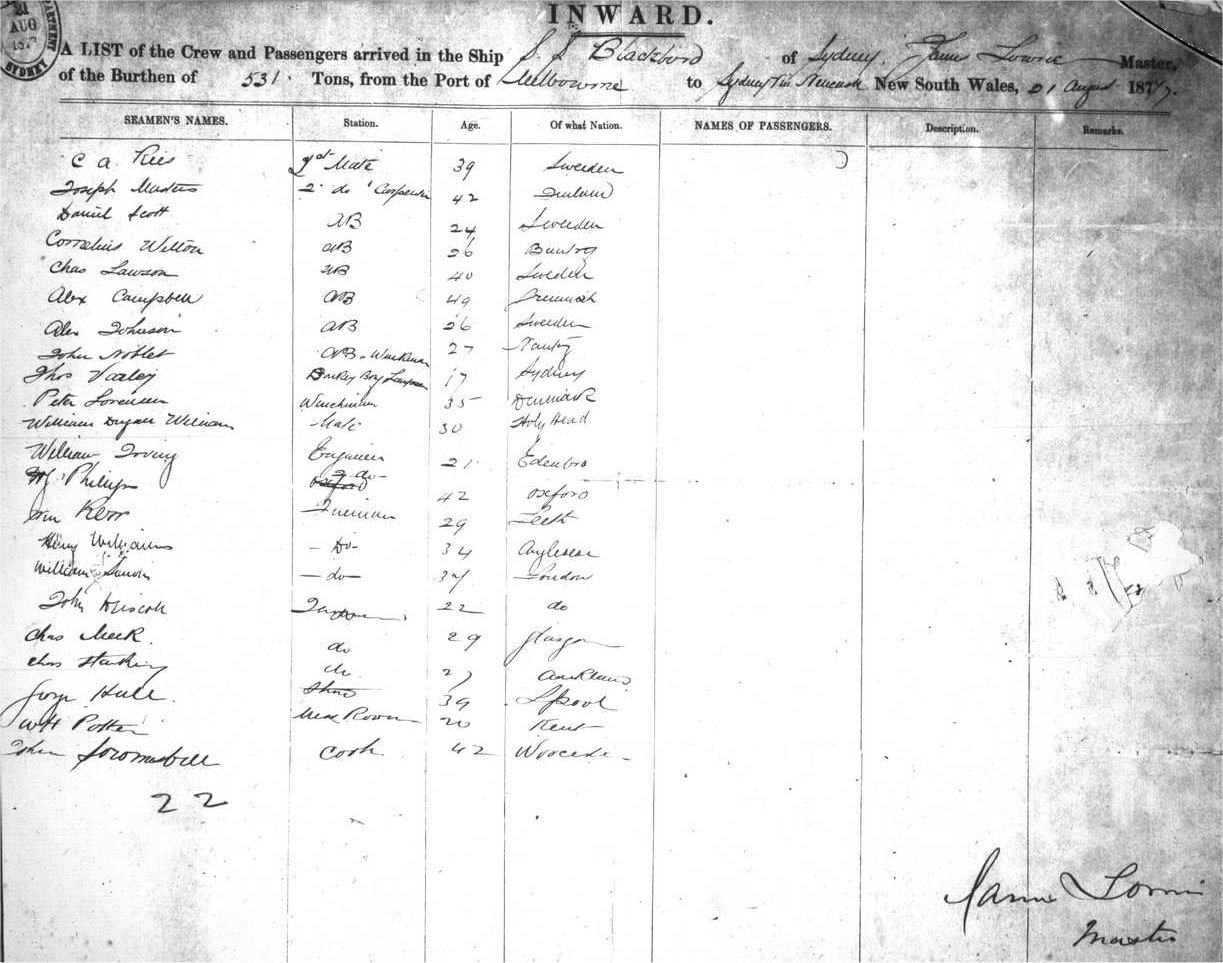 21
AUG
SYDNEY
INWARD.
A LIST of the Crew and Passengers arrived in the Ship S. S Blackbird of Sydney, James Lowrie Master,
of the Burthen of 531 Tons, from the Port of Melbourne to Sydney New South Wales, 21 August 1877.
SEAMEN'S NAMES. Station. Age. Of what Nation. NAMES OF PASSENGERS. Description. Remarks.
C A 1st Mate 39 Sweden
Joseph 2 do Carpenter 42
Daniel Scott AB 24 Sweden
Cornelius Wilton AB 26 Bantry
Chas Lawson AB 40 Sweden
Alex Campbell AB 49 Greenock
Alex Johnson AB 26 Sweden
John Noblet AB 27
Thos Varley Donkey Boy 17 Sydney
Peter Lorensen Winchman 35 Denmark
William William Mate 30 Holy Head
William Irving Engineer 21 Edenbro
Phillips 2 do 42 oxford
Wm Kerr Fireman 29 Leith
Henry Williams - Do - 34 Anglesea
William - do - 37 London
John Driscoll 22 do
Chas Meek. do 29 Glasgow
Chas do 27
George Hall. 39 L'pool
WH Potter Mess Room 20 Kent
John Cook 42
22
James Lowrie
Master